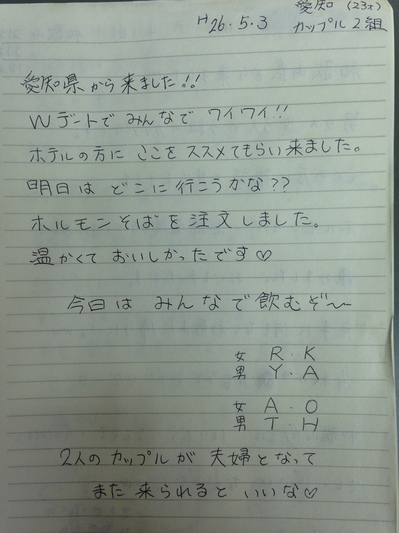 愛知(23才)
H26.5.3 カップル2組
愛知県から来ました!!
Wデートでみんなでワイワイ!!
ホテルの方にここをススメてもらい来ました。
明日はどこに行こうかな??
ホルモンそばを注文しました。
温かくておいしかったです♡
今日はみんなで飲むぞ〜
女 R・K
男 Y・A
女 A・O
男 T・H
2人のカップルが夫婦となって
また来られるといいな♡